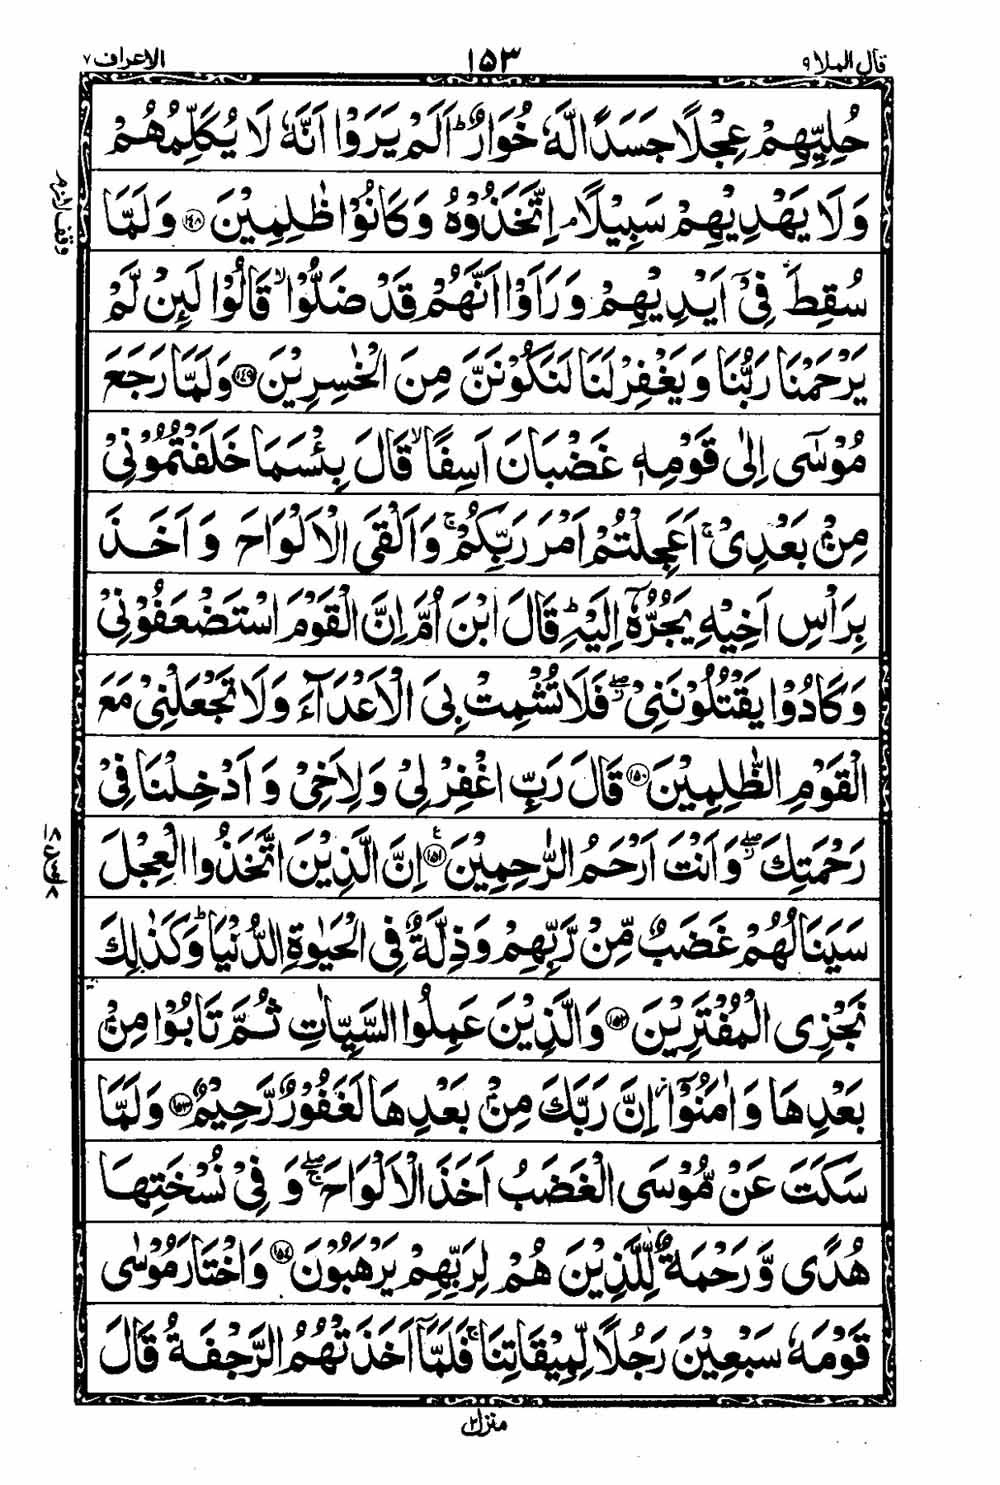 قال الملا ٩
١٥٣
الاعراف ٧
حُلِيِّهِمْ عِجْلًا جَسَدًا لَّهٗ خُوَارٌ ؕ اَلَمْ يَرَوْا اَنَّهٗ لَا يُكَلِّمُهُمْ
وَلَا يَهْدِيْهِمْ سَبِيْلًا ۘ اِتَّخَذُوْهُ وَكَانُوْا ظٰلِمِيْنَ ﴿١٤٨﴾ وَلَمَّا
وقف لازم
سُقِطَ فِيْۤ اَيْدِيْهِمْ وَرَاَوْا اَنَّهُمْ قَدْ ضَلُّوْا ۙ قَالُوْا لَىِٕنْ لَّمْ
يَرْحَمْنَا رَبُّنَا وَيَغْفِرْ لَنَا لَنَكُوْنَنَّ مِنَ الْخٰسِرِيْنَ ﴿١٤٩﴾ وَلَمَّا رَجَعَ
مُوْسٰۤى اِلٰى قَوْمِهٖ غَضْبَانَ اَسِفًا ۙ قَالَ بِئْسَمَا خَلَفْتُمُوْنِيْ
مِنْۢ بَعْدِيْ ۚ اَعَجِلْتُمْ اَمْرَ رَبِّكُمْ ۚ وَاَلْقَى الْاَلْوَاحَ وَاَخَذَ
بِرَاْسِ اَخِيْهِ يَجُرُّهٗۤ اِلَيْهِ ؕ قَالَ ابْنَ اُمَّ اِنَّ الْقَوْمَ اسْتَضْعَفُوْنِيْ
وَكَادُوْا يَقْتُلُوْنَنِيْ ۖ فَلَا تُشْمِتْ بِيَ الْاَعْدَآءَ وَلَا تَجْعَلْنِيْ مَعَ
الْقَوْمِ الظّٰلِمِيْنَ ﴿١٥٠﴾ قَالَ رَبِّ اغْفِرْ لِيْ وَلِاَخِيْ وَاَدْخِلْنَا فِيْ
رَحْمَتِكَ ۖ وَاَنْتَ اَرْحَمُ الرّٰحِمِيْنَ ﴿١٥١﴾ اِنَّ الَّذِيْنَ اتَّخَذُوا الْعِجْلَ
سَيَنَالُهُمْ غَضَبٌ مِّنْ رَّبِّهِمْ وَذِلَّةٌ فِي الْحَيٰوةِ الدُّنْيَا ؕ وَكَذٰلِكَ
نَجْزِي الْمُفْتَرِيْنَ ﴿١٥٢﴾ وَالَّذِيْنَ عَمِلُوا السَّيِّاٰتِ ثُمَّ تَابُوْا مِنْۢ
بَعْدِهَا وَاٰمَنُوْۤا ؗ اِنَّ رَبَّكَ مِنْۢ بَعْدِهَا لَغَفُوْرٌ رَّحِيْمٌ ﴿١٥٣﴾ وَلَمَّا
سَكَتَ عَنْ مُّوْسَى الْغَضَبُ اَخَذَ الْاَلْوَاحَ ۖۚ وَفِيْ نُسْخَتِهَا
هُدًى وَّرَحْمَةٌ لِّلَّذِيْنَ هُمْ لِرَبِّهِمْ يَرْهَبُوْنَ ﴿١٥٤﴾ وَاخْتَارَ مُوْسٰى
قَوْمَهٗ سَبْعِيْنَ رَجُلًا لِّمِيْقَاتِنَا ۚ فَلَمَّاۤ اَخَذَتْهُمُ الرَّجْفَةُ قَالَ
منزل ٢